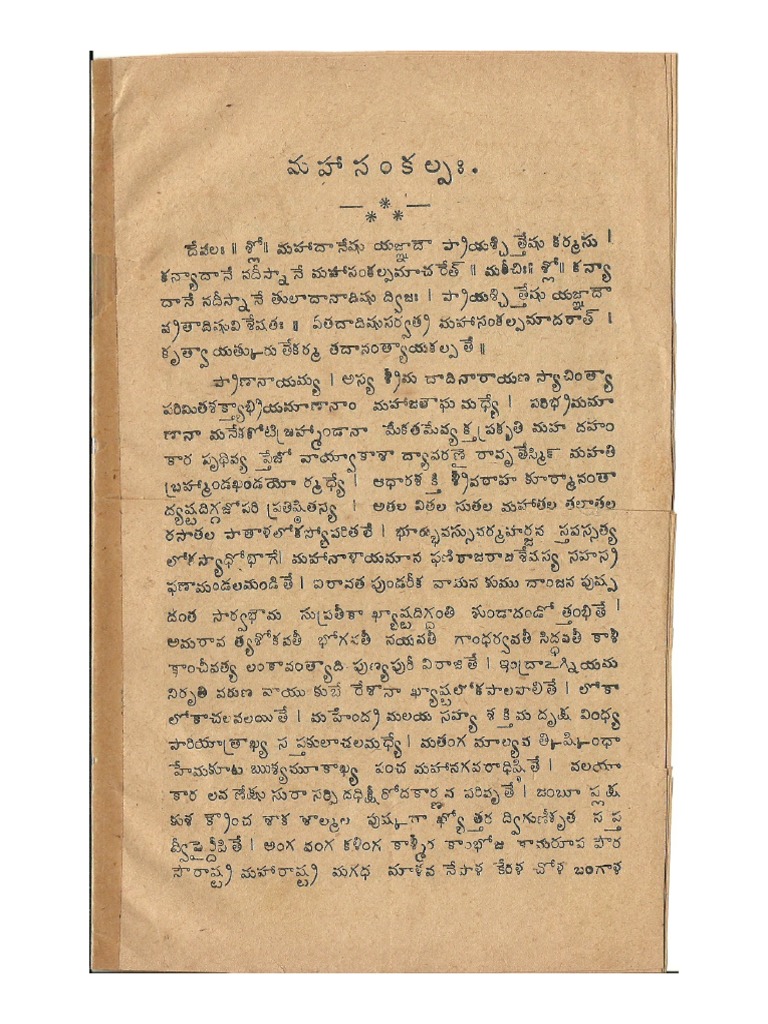 మహాసంకల్పః.
దేవలః ॥ శ్లో॥ మహాదానేషు యజ్ఞాదా ప్రాయశ్చి త్తేషు కర్మసు ।
కన్యాదానే నదీస్నానే మహాసంకల్పమాచరేత్ ॥ మరీచిః॥ శ్లో॥ కన్యా
దానే నదీస్నానే తులాదానాదిషు ద్విజః । ప్రాయశ్చి త్తేషు యజ్ఞాదా
వ్రతాదిషువి శేషతః ॥ ఏతదాదిషుసర్వత్ర మహాసంకల్పమాదరాత్ ।
కృత్వా యత్కురు తేకర్మ తదానంత్యాయకల్ప తే ॥
ప్రాణానాయమ్య । అస్య శ్రీమ దాదినారాయణ స్యాచింత్యా
పరిమితశక్త్యాభ్రియమాణానాం మహాజలౌఘ మధ్యే । పరిభ్రమమా
ణానా మనేకకోటి బ్రహ్మాండానా మేకతమేవ్య క్త ప్రకృతి మహ దహం
కార పృథివ్య ప్తేజో వాయ్వాకాశా ద్యావరణై రావృతేస్మి మహతి
బ్రహ్మాండఖండయో ర్మధ్యే । ఆధారశ క్తి శ్రీవరాహ కూర్మానంతా
ద్యష్టదిగ్గజోపరి ప్రతిష్ఠితస్య । అతల వితల సుతల మహాతల తలాతల
రసాతల పాతాళలోకస్యోపరితలే । భూర్భువస్సువర్మహర్జన స్తపస్సత్య
లోకస్యాధోభాగే। మహానాళాయమాన ఫణిరాజరాజశేషస్య సహస్ర
ఫణామండలమండి తే । ఐరావత పుండరీక వామన కుము దాంజన పుష్ప
దంత సార్వభౌమ సుప్రతీకా ఖ్యాష్టదిగ్దంతి శుండాదండో త్తంభితే ।
అమరావ త్యశోకవతీ భోగవతీ నయవతీ గాంధర్వవతీ సిద్ధవతీ కాశీ
కాంచీవత్య లంకావంత్యాది పుణ్యపురీ విరాజితే । ఇంద్రాఽగ్నియమ
నిరృతి వరుణ వాయు కుబే రేశానా ఖ్యాష్టలోకపాలపాలితే । లోకా
లోకాచలవలయితే । మహేంద్ర మలయ సహ్య శ క్తిమ దృక్ష వింధ్య
పారియాత్రాఖ్య స ప్తకులాచలమధ్యే । మతంగ మాల్యవ త్కిష్కింధా
హేమకూట ఋశ్యమూకాఖ్య పంచ మహానగవరాధిష్ఠితే । వలయా
కార లవ ణేక్షు సురా సర్పి దధిక్షీరోదకార్ణవ పరివృతే । జంబూ ప్లక్ష
కుశ క్రౌంచ శాక శాల్మల పుష్కరా ఖ్యోత్తర ద్విగుణీకృత స ప్త
ద్వీపైర్దీపితే । అంగ వంగ కళింగ కాశ్మీర కాంభోజ కామరూప పౌర
సౌరాష్ట్ర మహారాష్ట్ర మగధ మాళవ నేపాళ కేరళ చోళ బంగాళ